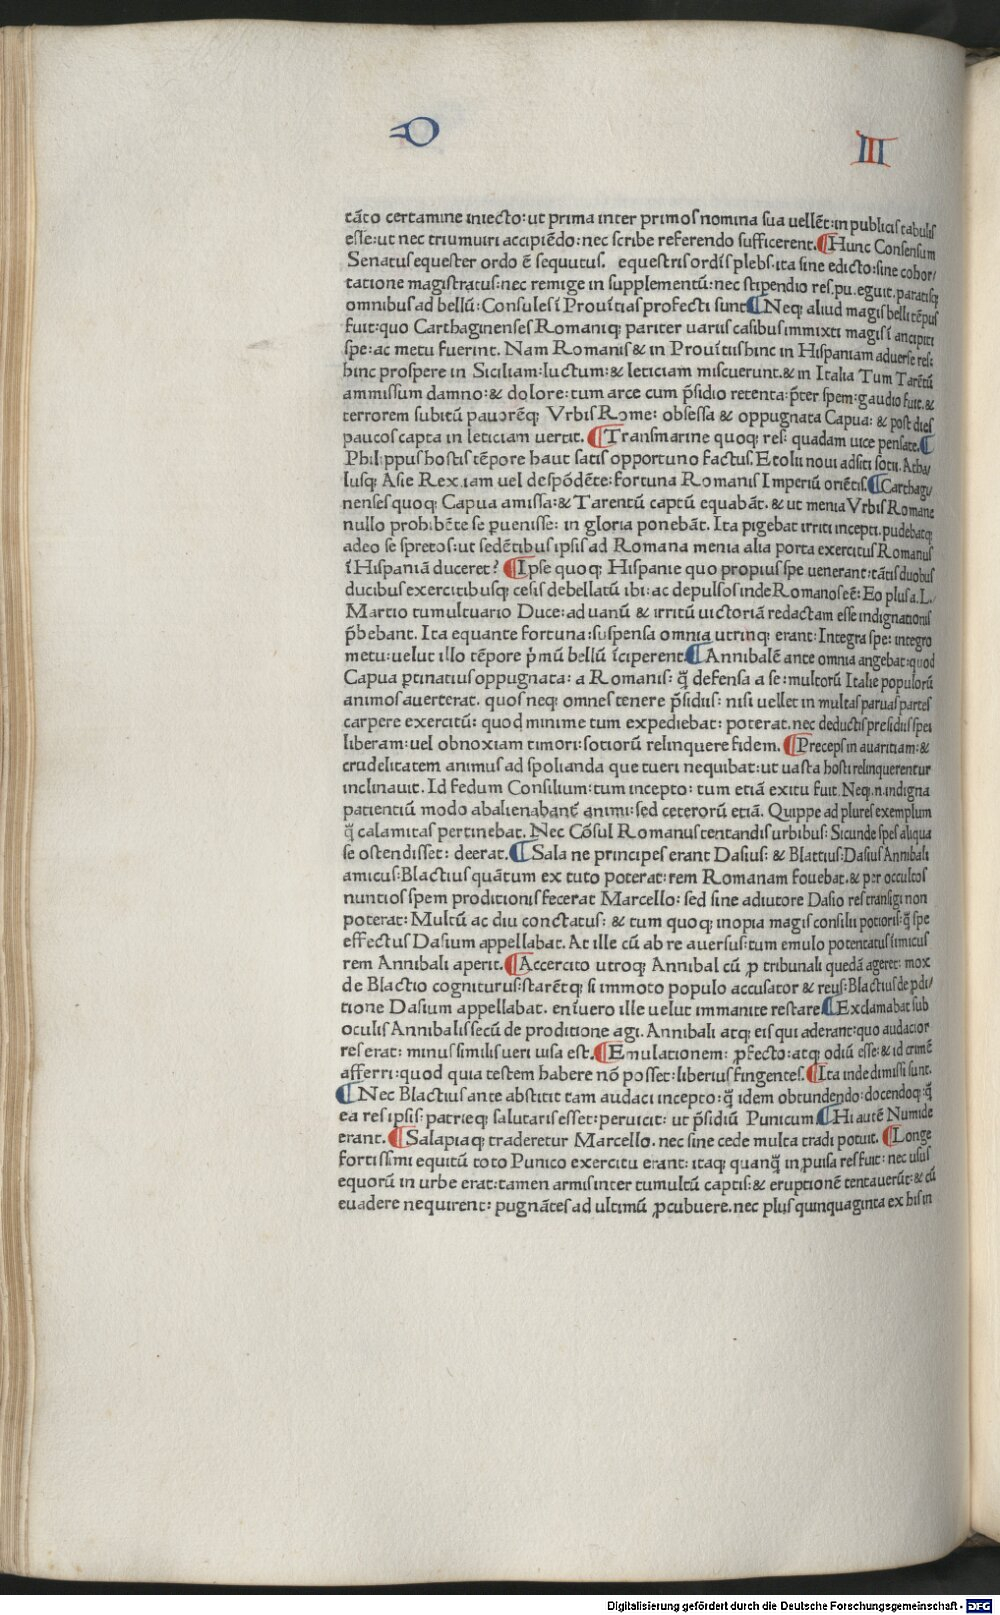 D
III
tāto certamine iniecto: ut prima inter primos nomina sua vellēt: in publicis tabulis
esse: ut nec triumuiri accipiēdo: nec scribe referendo sufficerent. ¶Hunc Consensum
Senatus equester ordo ē sequutus. equestris ordīs plebs. ita sine edicto: sine cohor/
tatione magistratus: nec remige in supplementū: nec stipendio res. pu. eguit. paratisq;
omnibus ad bellū: Consules ī Prouītias profecti sunt ¶Neq; aliud magis belli tēpus
fuit: quo Carthaginenses Romaniq; pariter uariis casibus immixti magis ī ancipiti
spe: ac metu fuerint. Nam Romanis & in Prouītiis hinc in Hispaniam aduerse res:
hinc prospere in Siciliam: luctum: & leticiam miscuerunt. & in Italia Tum Tarētū
ammissum damno: & dolore: tum arce cum p̄sidio retenta: p̄ter spem: gaudio fuit. &
terrorem subitū pauorēq; Vrbis Rome: obsessa & oppugnata Capua: & post dies
paucos capta in leticiam uertit. ¶Transmarine quoq; res: quadam uice pensate. ¶
Philippus hostis tēpore haut satis opportuno factus. Etolii noui adsiti sotii. Atha/
lusq; Asie Rex. iam uel despōdēte: fortuna Romanis Imperiū oriētis. ¶Carthagi/
nenses quoq; Capua amissa: & Tarentū captū equabāt. & ut menia Vrbis Romane
nullo prohibēte se puenisse: in gloria ponebāt. Ita pigebat irriti incepti. pudebatq;
adeo se spretos: ut sedētibus ipsis ad Romana menia alia porta exercitus Romanus
ī Hispaniā duceret? ¶Ipse quoq; Hispanie quo propius spe uenerant: tātis duobus
ducibus exercitibusq; cesis debellatū ibi: ac depulsos inde Romanos eē: Eo plus a. L.
Martio tumultuario Duce: ad uanū & irritū uictoriā redactam esse indignationis
p̄bebant. Ita equante fortuna: suspensa omnia utrinq; erant: Integra spe: integro
metu: uelut illo tēpore p̄mū bellū īciperent ¶Annibalē ante omnia angebat: quod
Capua ꝑtinatius oppugnata: a Romanis: q̄ defensa a se: multorū Italie populorū
animos auerterat. quos neq; omnes tenere p̄sidiis: nisi uellet in multas paruas partes
carpere exercitū: quod minime tum expediebat: poterat. nec deductis presidiis spei
liberam: uel obnoxiam timori: sotiorū relinquere fidem. ¶Preceps in auaritiam: &
crudelitatem animus ad spolianda que tueri nequibat: ut uasta hosti relinquerentur
inclinauit. Id fedum Consilium: tum incepto: tum etiā exitu fuit. Neq. n. indigna
patientiū modo abalienabant̄ animi: sed ceterorū etiā. Quippe ad plures exemplum
q̄ calamitas pertinebat. Nec Cōsul Romanus tentandis urbibus: Sicunde spes aliqua
se ostendisset: deerat. ¶Sala ne principes erant Dasius: & Blattius: Dasius Annibali
amicus: Blactius quātum ex tuto poterat: rem Romanam fouebat. & per occultos
nuntios spem proditionis fecerat Marcello: sed sine adiutore Dasio res transigi non
poterat: Multū ac diu conctatus: & tum quoq; inopia magis consilii potioris: q̄ spe
effectus Dasium appellabat. At ille cū ab re auersus: tum emulo potentatus īimicus
rem Annibali aperit. ¶Accercito utroq; Annibal cū ꝓ tribunali quedā ageret: mox
de Blactio cogniturus: starētq; si immoto populo accusator & reus: Blactius de ꝓdi/
tione Dasium appellabat. enīuero ille uelut immanite restare ¶Exclamabat sub
oculis Annibalis secū de proditione agi. Annibali atq; eis qui aderant: quo audacior
res erat: minus similis ueri uisa est. ¶Emulationem: ꝓfecto: atq; odiū esse: & id crimē
afferri: quod quia testem habere nō posset: liberius fingentes. ¶Ita inde dimissi sunt.
¶Nec Blactius ante abstitit tam audaci incepto: q̄ idem obtundendo: docendoq; q̄
ea res ipsis: patrieq; salutaris esset: peruicit: ut p̄sidiū Punicum ¶Hi autē Numide
erant. ¶Salapiaq; traderetur Marcello. nec sine cede multa tradi potuit. ¶Longe
fortissimi equitū toto Punico exercitu erant: itaq; quanq̄ in ꝓuisa res fuit: nec usus
equorū in urbe erat: tamen armis inter tumultū captis: & eruptionē tentauerūt: & cū
euadere nequirent: pugnātes ad ultimū ꝓcubuere. nec plus quinquaginta ex his in
Digitalisierung gefördert durch die Deutsche Forschungsgemeinschaft - DFG